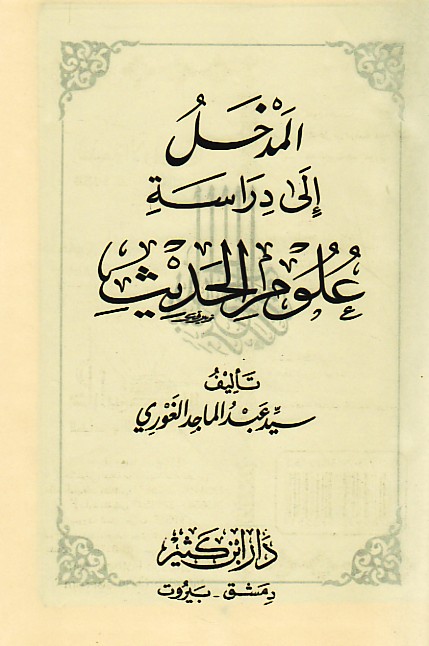 المَدْخَلُ
إِلَى دِرَاسَةِ
عُلُومِ الحَدِيْثِ
تَأليْفُ
سيِّد عَبْدُ الماجد الغَوْرِي
دَارُ ابْن كَثِيْر
دِمَشق - بَيْرُوت